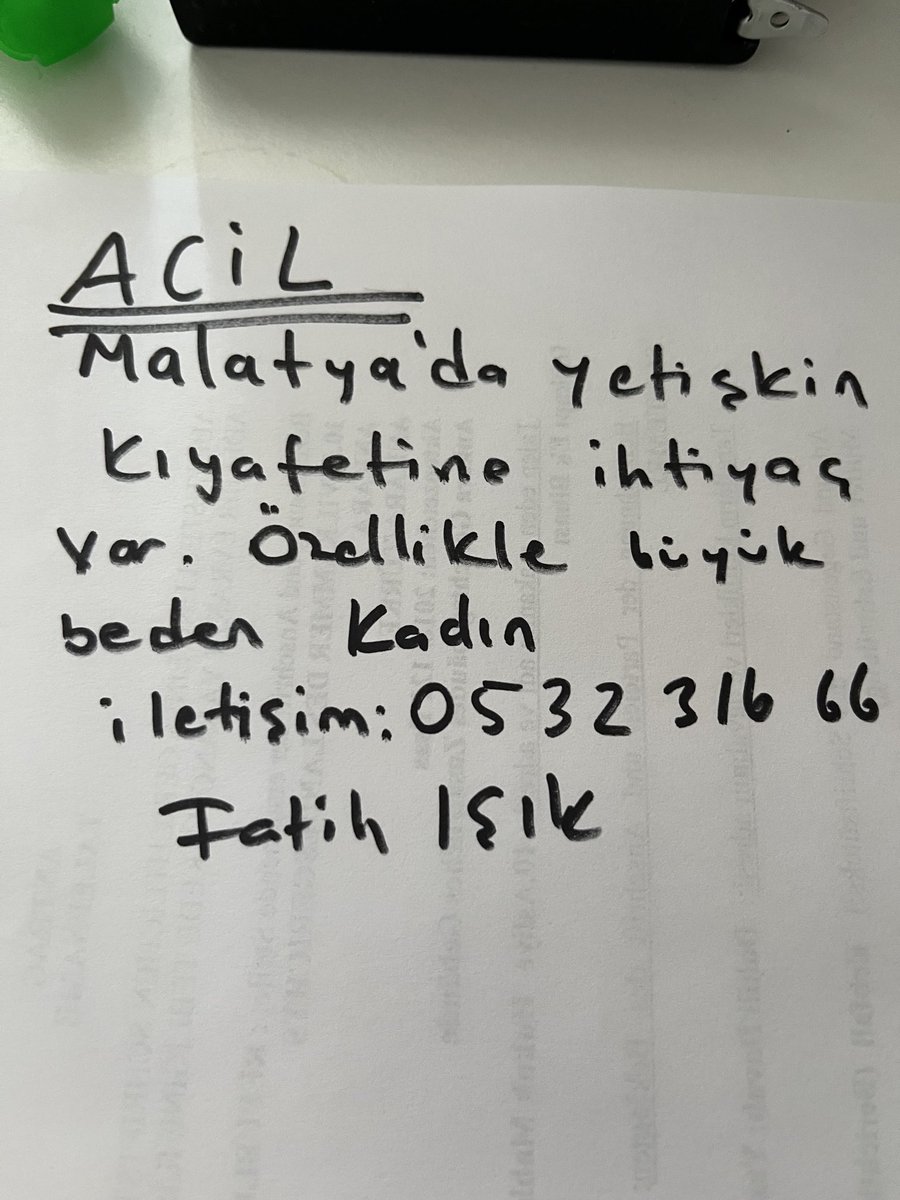 ACİL
Malatya'da yetişkin
kıyafetine ihtiyaç
var. Özellikle büyük
beden Kadın
iletişim: 0532 316 66
Fatih IŞık